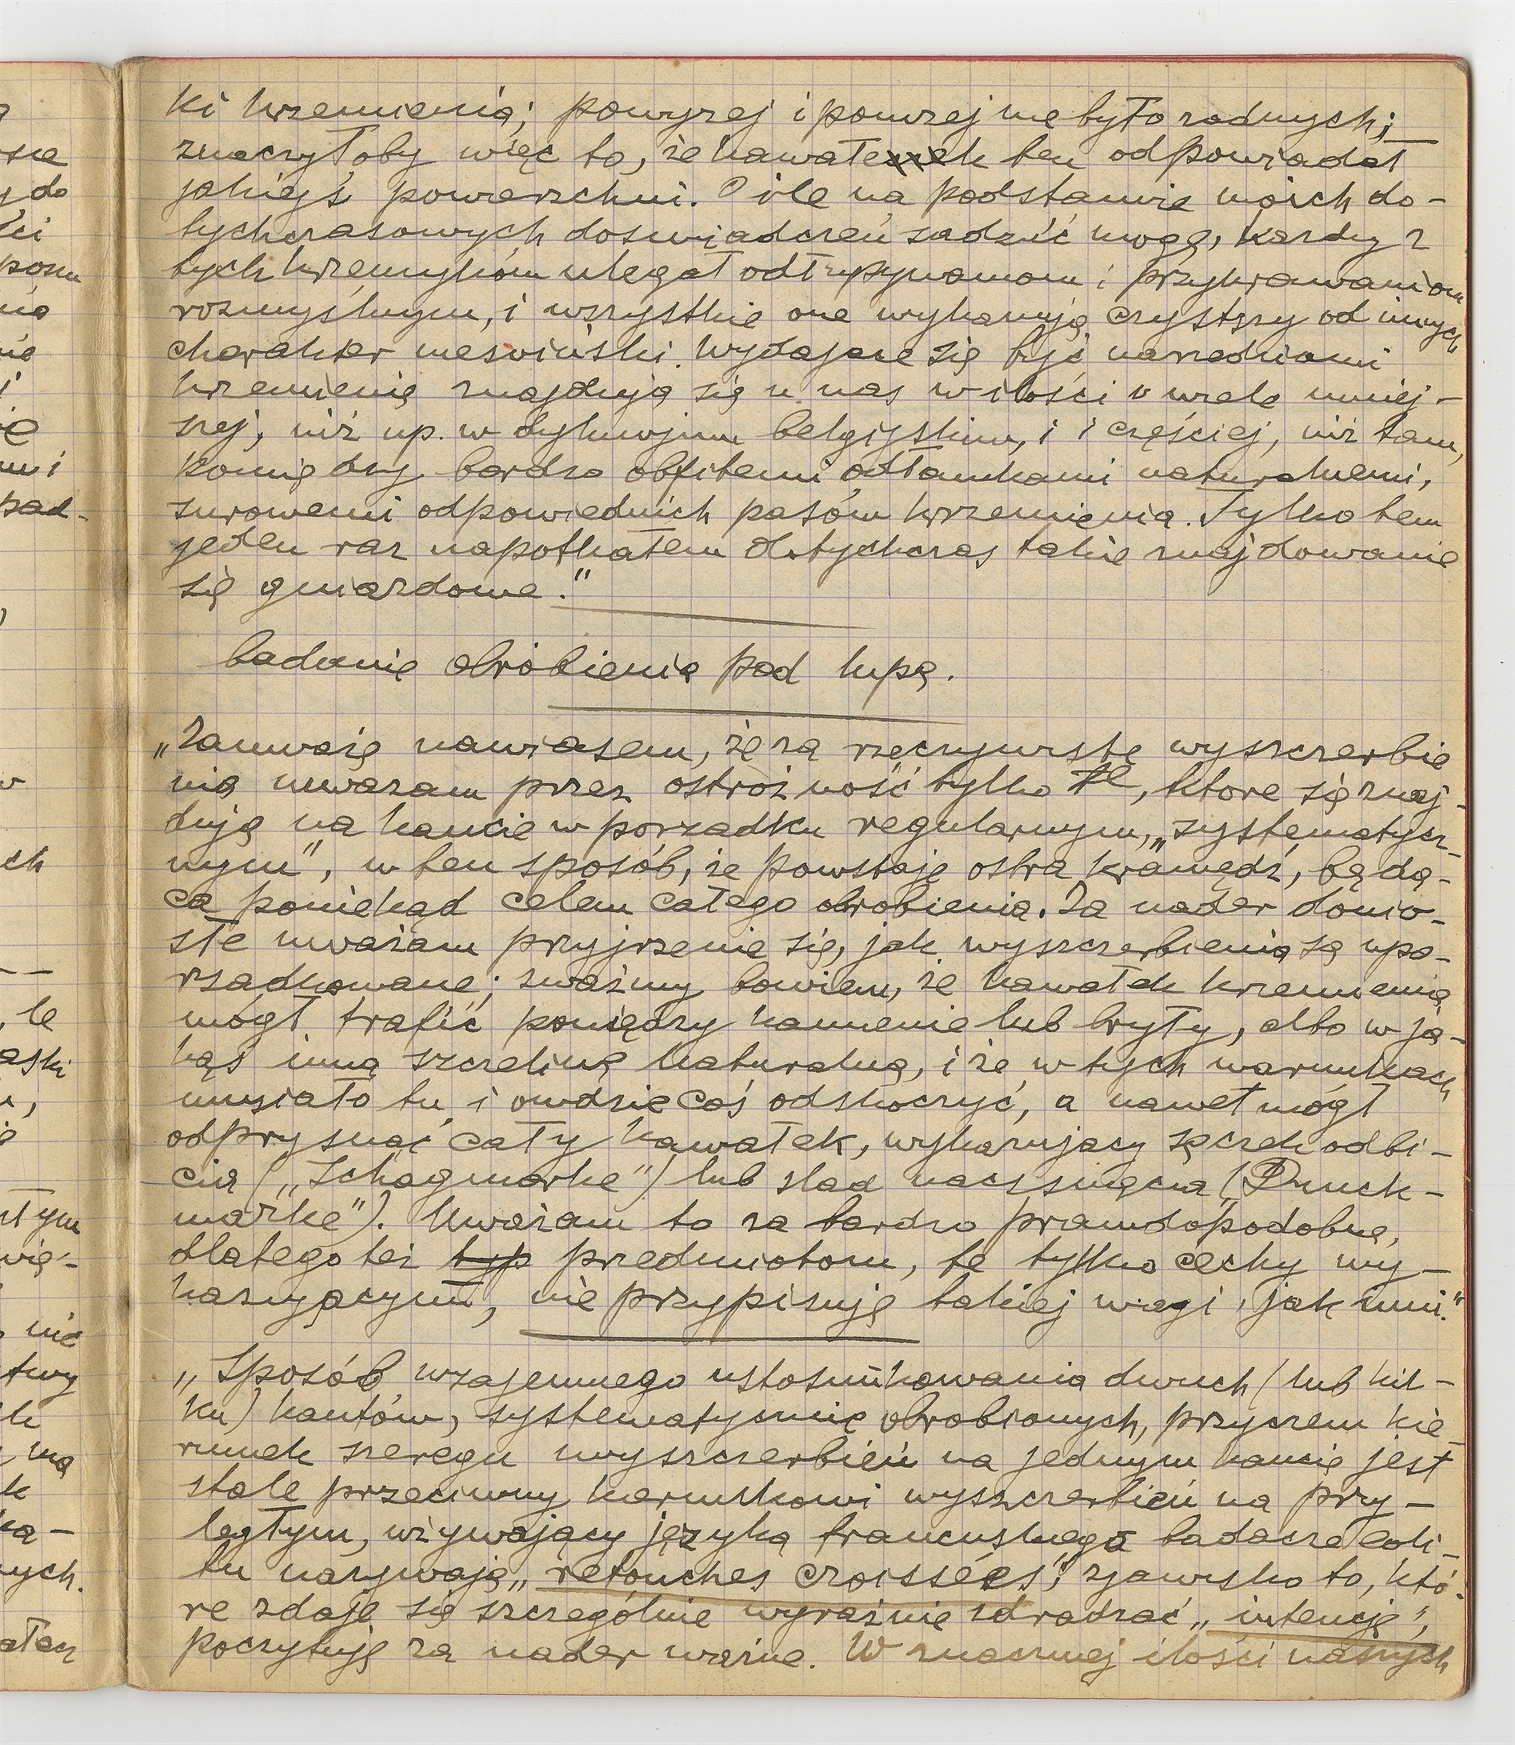 ki krzemienia; powyżej i poniżej nie było żadnych;
znaczyłoby więc to, że kawałek ten odpowiadał
jakiejś powierzchni. O ile na podstawie moich do-
tychczasowych doświadczeń sądzić mogę, każdy z
tych krzemyków ulegał odłupywaniom i przykrawaniom
rozmyślnym, i wszystkie one wykazują czystszy od innych
charakter meswiński. Wydające się być narzędziami
krzemienie znajdują się u nas w ilości o wiele mniej-
szej, niż np. w dyluwjum belgijskim, i i częściej, niż tam,
pomiędzy bardzo obfitemi odłamkami naturalnemi,
surowemi odpowiednich pasów krzemienia. Tylko ten
jeden raz napotkałem dotychczas takie znajdowanie
się gniazdowe."
Badanie obrobienia pod lupą.
„Zauważę nawiasem, że za rzeczywiste wyszczerbie
nia uważam przez ostrożność tylko te, które się znaj-
dują na kancie w porządku regularnym, „systematycz-
nym", w ten sposób, że powstaje ostra krawędź, będą-
ca poniekąd celem całego obrobienia. Za nader donio-
słe uważam przyjrzenie się, jak wyszczerbienia są upo-
rządkowane; zważmy bowiem, że kawałek krzemienia
mógł trafić pomiędzy kamienie lub bryły, albo w ja-
kąś inną szczelinę naturalną, i że w tych warunkach
musiało tu i owdzie coś odskoczyć, a nawet mógł
odprysnąć cały kawałek, wykazujący sęczek odbi-
cia („Schagmarke") lub ślad naciśnięcia („Druck-
marke"). Uważam to za bardzo prawdopodobne,
dlatego też typ przedmiotom, te tylko cechy wy-
kazującym, nie przypisuję takiej wagi, jak inni."
„Sposób wzajemnego ustosunkowania dwuch (lub kil-
ku) kantów, systematycznie obrobionych, przyczem kie-
runek szeregu wyszczerbień na jednym kancie jest
stale przeciwny kierunkowi wyszczerbień na przy-
ległym, używający języka francuskiego badacze eoli-
tu nazywają „retouches croissées"; zjawisko to, któ-
re zdaje się szczególnie wyraźnie zdradzać „intencję",
poczytuję za nader ważne. W znacznej ilości naszych